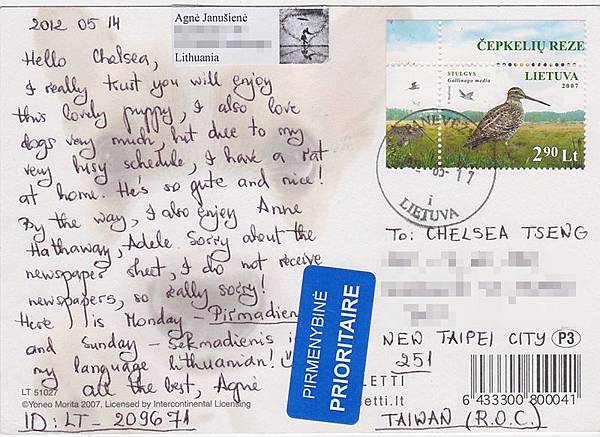 2012 05 14
Agnė Janušienė
Lithuania
Hello Chelsea,
I really trust you will enjoy
this lovely puppy, I also love
dogs very much, but due to my
very busy schedule, I have a rat
at home. He's so cute and nice!
By the way, I also enjoy Anne
Hathaway, Adele. Sorry about the
newspaper sheet, I do not receive
newspapers, so really sorry!
Here is Monday - Pirmadienis
and sunday - sekmadienis in
my language lithuanian!
all the best, Agnė
LT 51027
©Yoneo Morita 2007, Licensed by Intercontinental Licensing
ID: LT - 209671
ČEPKELIŲ REZE
STULGYS
Gallinago media
LIETUVA
2007
2.90 Lt
17
i
LIETUVA
To: CHELSEA TSENG
NEW TAIPEI CITY
P3
251
TAIWAN (R.O.C.)
PIRMENYBINĖ
PRIORITAIRE
LETTI
etti.lt
6 433300 800041